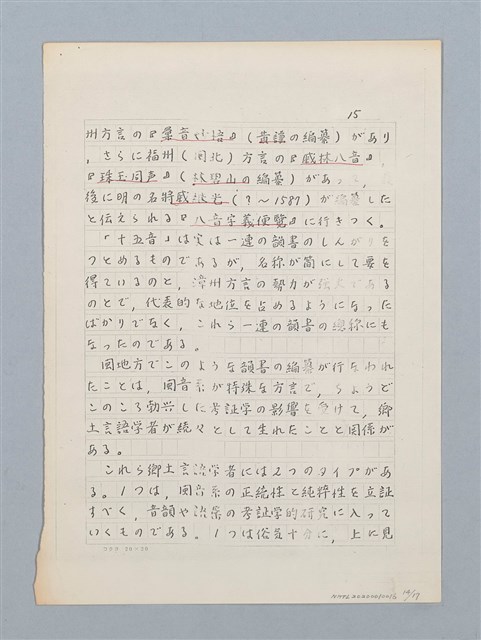 15
州方言の『彙音妙悟』(黄謙の編纂)があり
，さらに福州(閩北)方言の『戚林八音』
『珠玉同声』(林碧山の編纂)があ
後に明の名将戚継光(？～1587)が編纂した
と伝えられる『八音字義便覧』に行きつく。
「十五音」は実は一連の韻書のしんがりを
つとめるものであるが，名称が簡にして要を
得ているのと，漳州方言の勢力が強大である
のとで，代表的な地位を占めるようになった
ばかりでなく，これら一連の韻書の総称にも
なったのである。
閩地方でこのような韻書の編纂が行なわれ
たことは，閩音系が特殊な方言で，ちょうど
このころ勃興した考証学の影響を受けて，郷
土言語学者が続々として生れたことと関係が
ある。
これら郷土言語学者には2つのタイプがあ
る。1つは，閩音系の正統性と純粋性を立証
すべく，音韻や語彙の考証学的研究に入って
いくものである。1つは俗気十分に，上に見
コクヨ 20×20
14/17